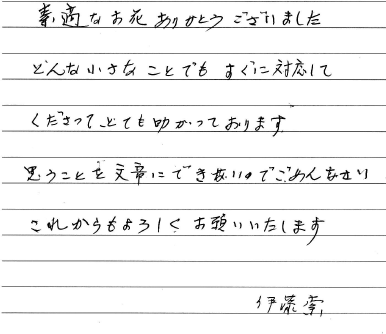 素適なお花ありがとうございました
どんな小さなことでもすぐに対応して
くださってとても助かっております
思うことを文章にできないのでごめんなさい
これからもよろしくお願いいたします
伊藤